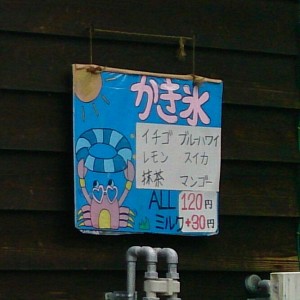 かき氷
イチゴ ブルーハワイ
レモン スイカ
抹茶 マンゴー
ALL 120円
ミルク+30円